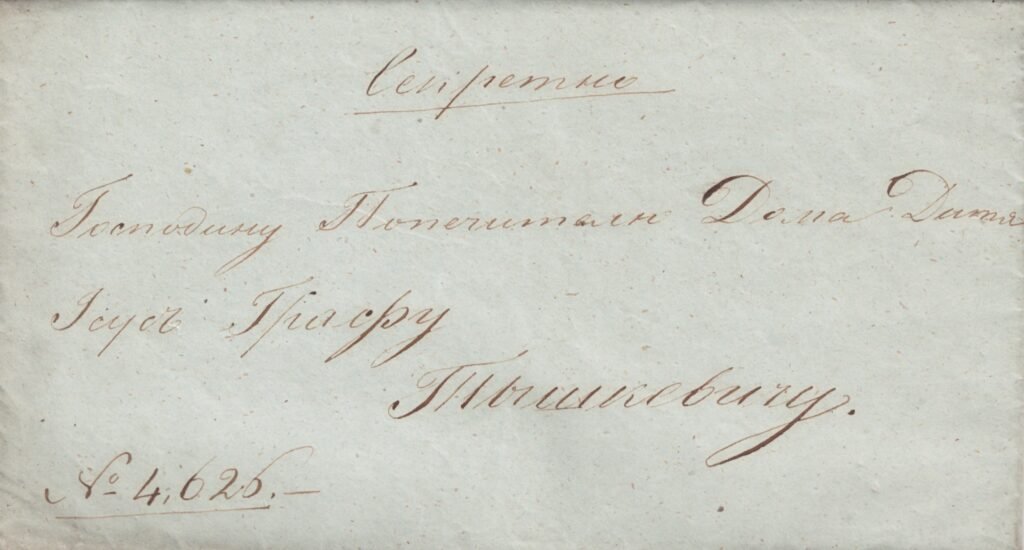 Секретно
Господину Попечителю Дома Дитя
Iсусъ Графу
Тышкевичу.
№ 4,626.—